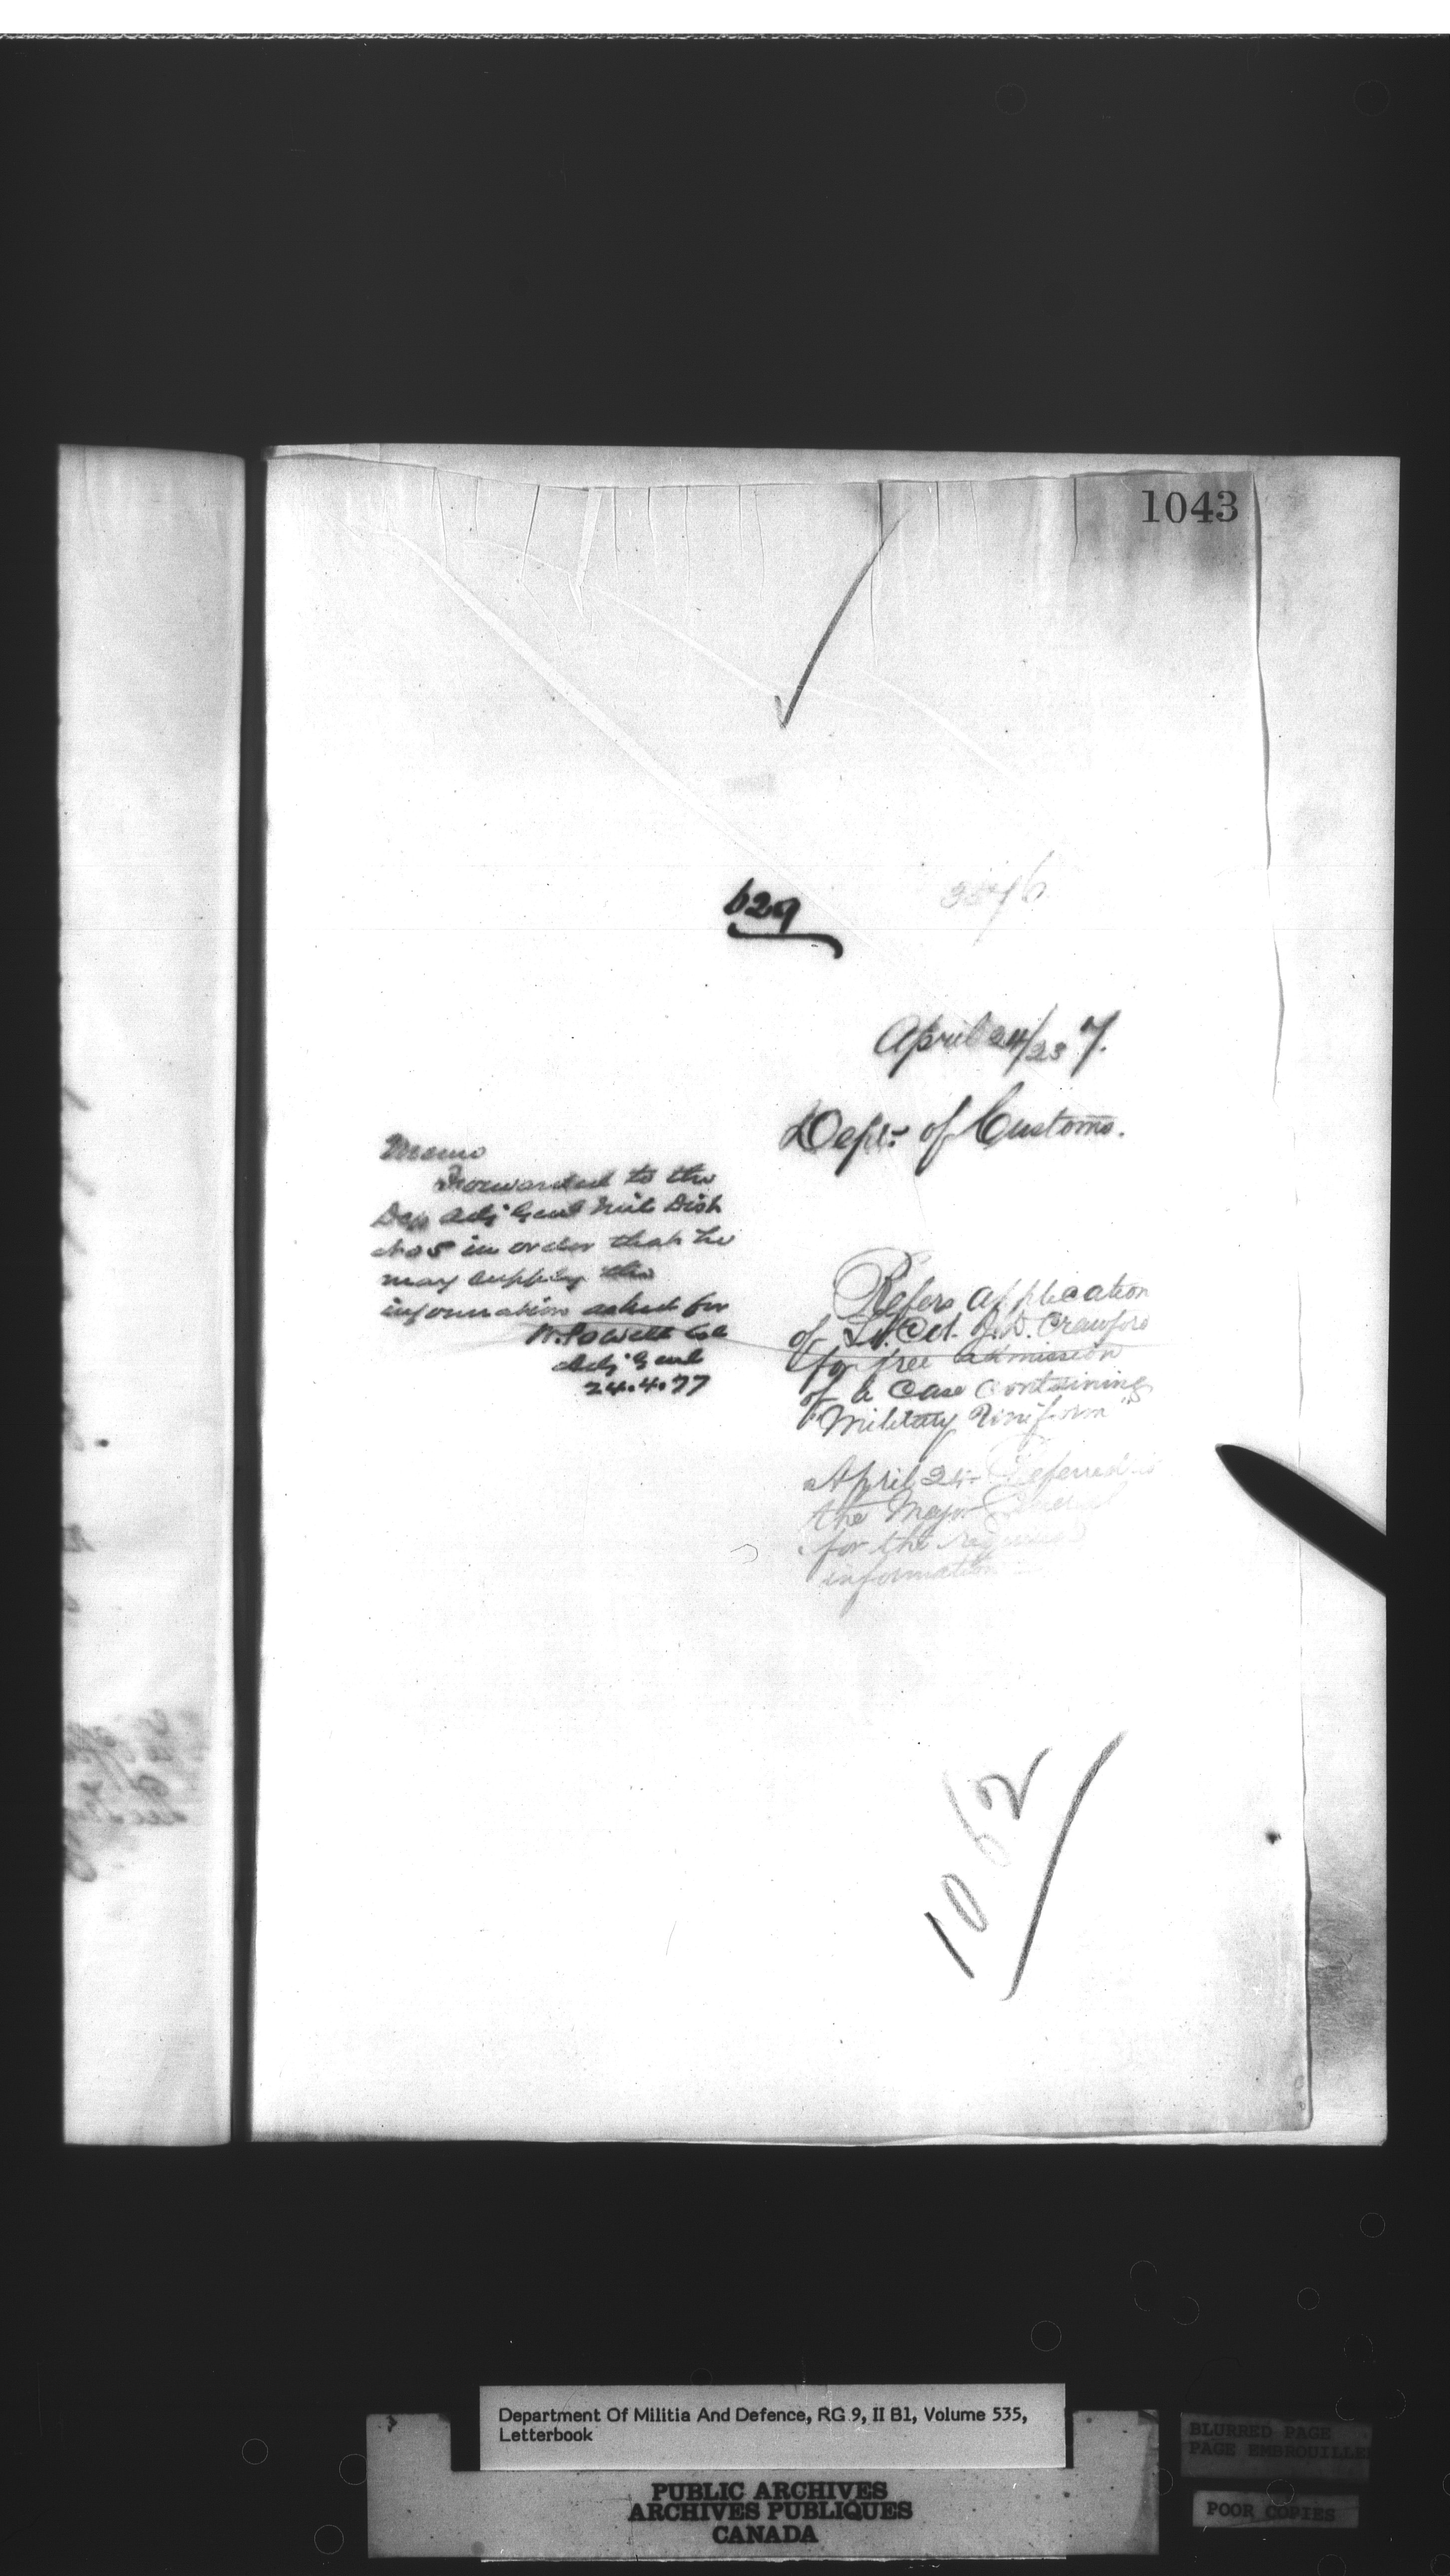 1043
629
3546
April 24/23 7.
Dept: of Customs.
Memo
Forwarded to the
Dep Adj Genl Mil Dist
No 5 in order that he
may supply the
information asked for
W. Powell Col
Adj Genl
24.4.77
Refers application
of Lt. Col. J.D. Crawford
for free admission
of a Case Containing
"Military Uniform"
April 24. Referred to
the Major General
for the required
information
1052
Department Of Militia And Defence, RG 9, II B1, Volume 535,
Letterbook
PUBLIC ARCHIVES
ARCHIVES PUBLIQUES
CANADA
BLURRED PAGE
PAGE EMBROUILLE
POOR COPIES